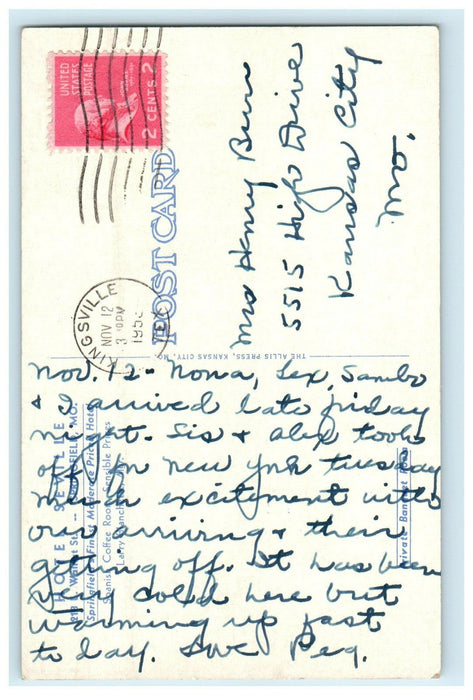 UNITED
STATES
POSTAGE
2 CENTS 2
POST CARD
Mrs Henry Burr
5515 High Drive
Kansas City
Mo.
KINGSVILLE
NOV 12
PM
TEX
THE ALLIS PRESS, KANSAS CITY, MO.
Nov. 12 - Nona, Lex, Sambo
& I arrived late friday
night. Sis & Alex took
off for New York tuesday
much excitement with
our arriving & their
getting off. It has been
very cold here but
warming up fast
to day. Love Peg.
HOTEL SEVILLE
213 Walnut St. -- SPRINGFIELD, MO.
Springfield's Finest Moderate Priced Hotel
Spanish Coffee Room, Sensible Prices
Larry
Private Banquet